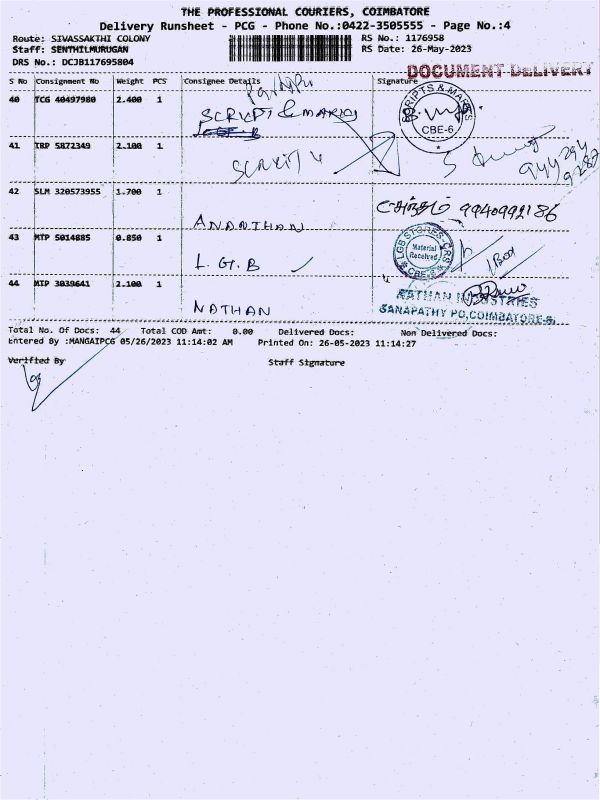 THE PROFESSIONAL COURIERS, COIMBATORE
Delivery Runsheet - PCG - Phone No.:0422-3505555 - Page No.:4
Route: SIVASSAKTHI COLONY
RS No.: 1176958
Staff: SENTHILMURUGAN
RS Date: 26-May-2023
DRS No.: DCJB117695804
DOCUMENT DELIVERY
S No Consignment No Weight PCS Consignee Details Signature
40 TCG 40497980 2.400 1 SCRIPT & MARKS
SCRIPTS & MARKS
CBE-6
41 TRP 5872349 2.100 1
42 SLM 320573955 1.700 1 ANANTHAN 9940992186
43 MTP 5014885 0.850 1 L.G.B
LGB STORES-CRS
Material
Received
CBE-6
1 Box
44 MTP 3039641 2.100 1 NATHAN
NATHAN INDUSTRIES
GANAPATHY PO, COIMBATORE-6.
Total No. Of Docs: 44 Total COD Amt: 0.00 Delivered Docs: Non Delivered Docs:
Entered By :MANGAIPCG 05/26/2023 11:14:02 AM Printed On: 26-05-2023 11:14:27
Verified By Staff Signature